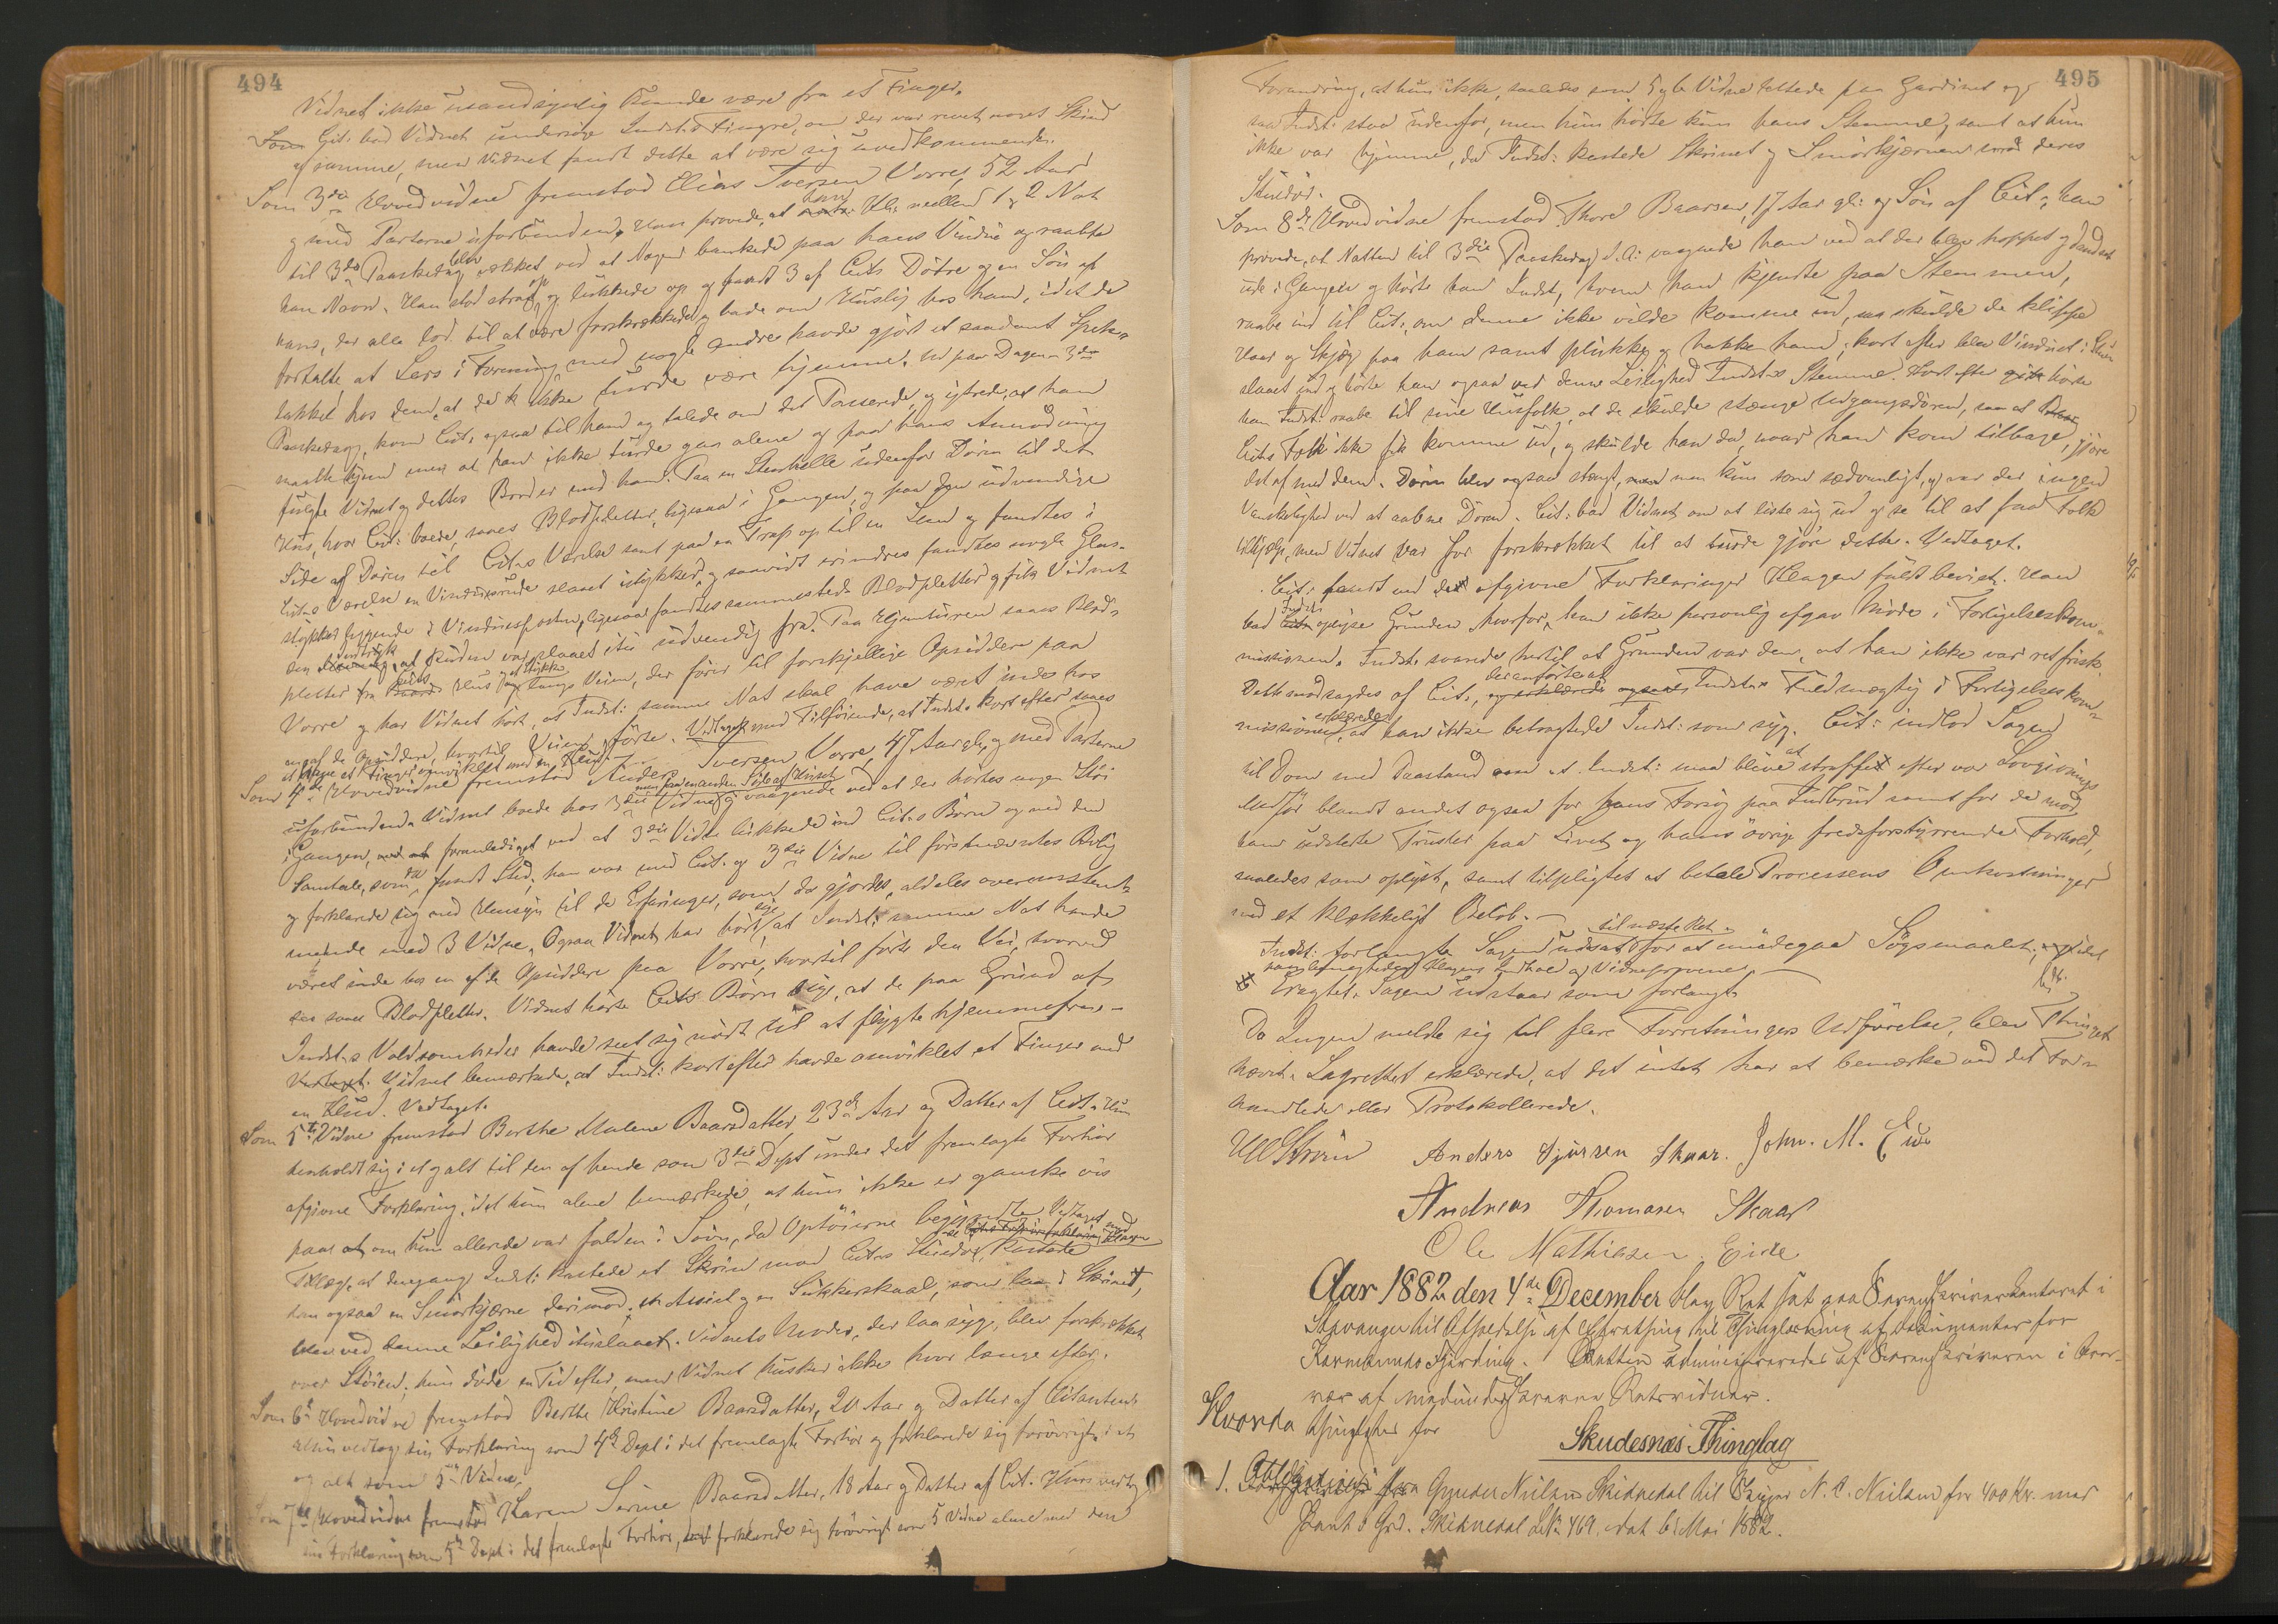 494
Vidnet ikke usandsynlig kunde være fra et Finger.
Cit. bad Vidnet undersøge Indst.s Fingre, om der var revet noget Skind
af samme, men Vidnet fandt dette at være sig uvedkommende.
Som 3die Hovedvidne fremstod Elias Iversen Vorre, 52 Aar
og med Parterne uforbunden. Han provede, at han Kl. mellem 1 & 2 Nat
til 3die Paaskedag blev vækket ved at Nogen bankede paa hans Vindu og raabte
hans Navn. Han stod strax op og lukkede op og fandt 3 af Cits Døtre og en Søn af
ham, der alle lod til at være forskrækkede og bade om Husly hos ham, idet de
fortalte, at Lars i Forening med nogle andre havde gjort et saadant Spek-
takkel hos dem, at de ikke turde være hjemme. Ud paa Dagen 3die
Paaskedag, kom Cit. ogsaa til ham og talede om det Passerede, og ytrede, at han
maatte hjem men at han ikke turde gaa alene og paa hans Anmodning
fulgte Vidnet og dettes Broder med ham. Paa en Stenhelle udenfor Døren til det
Hus, hvor Cit. boede, saaes Blodpletter, ligesaa i Gangen, og paa den udvendige
Side af Døren til Cits Værelse samt paa en Trap op til en Lem og fandtes i
Cits Værelse en Vinduesrude slaaet istykker, og saavidt erindres fandtes nogle Glas-
stykker liggende i Vinduesposten, ligesaa fandtes sammesteds Blodpletter og fik Vidnet
det Indtryk, at Ruden var slaaet itu udvendig fra. Paa Hjemturen saaes Blod-
pletter fra Cits Hus og et Stykke langs Veien, der fører til forskjellige Opsiddere paa
Vorre og har Vidnet hørt, at Indst. samme Nat skal have været inde hos
en af de Opsiddere, hvortil Veien førte. Vedtaget med Tilføiende, at Indst. kort efter saaes
at bære et Finger omviklet med en Klud.
Som 4de Hovedvidne fremstod Anders Iversen Vorre, 47 Aar gl. og med Parterne
uforbunden. Vidnet boede hos 3die Vidne men paa en anden Side af Huset og vaagnede ved at der hørtes nogen Støi
i Gangen, foranlediget ved at 3die Vidne lukkede ind Cits Børn og ved den
Samtale, som da fandt Sted; han var med Cit. og 3die Vidne til førstnævntes Bolig
og forklarede sig med Hensyn til de Erfaringer, som da gjordes, aldeles overensstem-
mende med 3 Vidne. Ogsaa Vidnet har hørt sige at Indst. samme Nat havde
været inde hos en af de Opsiddere paa Vorre, hvortil førte den Vei, hvorved
der saaes Blodpletter. Vidnet hørte Cits Børn sige, at de paa Grund af
Indst.s Voldsomheder havde seet sig nødt til at flygte hjemmefra.
Vidnet bemærkede, at Indst. kort efter havde omviklet et Finger med
en Klud. Vedtaget.
Som 5te Vidne fremstod Berthe Malene Baarsdatter 23de Aar og Datter af Cit. Hun
henholdt sig i et og alt til den af hende som 3die Dept under det fremlagte Forhør
afgivne Forklaring, idet hun alene bemærkede, at hun ikke er ganske vis
paa at om hun allerede var falden i Søvn, da Optøierne begyndte. Vedtaget med
Tillæg, at dengang Indst. kastede et Skrin mod Cits Stuedør, kastede
han ogsaa en Smørkjerne derimod. En Assiet og en Sukkerskaal, som laa i Skrinet,
blev ved denne Leilighed ituslaaet. Vidnets Moder, der laa syg, blev forskrækket
over Støien; hun døde en Tid efter, men Vidnet husker ikke hvor længe efter.
Som 6te Hovedvidne fremstod Berthe Kristine Baarsdatter, 20 Aar og Datter af Citanten.
Hun vedtog sin Forklaring som 4de Dept i det fremlagte Forhør og forklarede sig forøvrigt i et
og alt som 5te Vidne.
Som 7de Hovedvidne fremstod Karen Serine Baarsdatter, 18 Aar og Datter af Cit. Hun vedtog
sin Forklaring som 5te Dept i det fremlagte Forhør, forklarede sig forøvrigt som 5 Vidne alene med den
495
Forandring, at hun ikke, saaledes som 5 & 6 Vidne lettede paa Gardinet og
saa Indst. stod udenfor, men hun hørte kun hans Stemme, samt at hun
ikke var hjemme, da Indst. kastede Skrinet og Smørkjernen mod deres
Stuedør.
Som 8de Hovedvidne fremstod Thore Baarsen, 17 Aar gl. og Søn af Cit., han
provede, at Natten til 3die Paaskedag d.A. vaagnede han ved at der blev hoppet og dandset
ude i Gangen og hørte han Indst., hvem han kjendte paa Stemmen,
raabe ind til Cit., om denne ikke vilde komme ud, saa skulde de klippe
Haar og Skjæg paa ham samt plukke og hakke ham; kort efter blev Vinduet i Stuen
slaaet ind og hørte han ogsaa ved denne Leilighed Indst.s Stemme. Kort efter hørte
han Indst. raabe til sine Husfolk, at de skulde stænge Udgangsdøren, saa at
Cits Folk ikke fik komme ud, og skulde han da, naar han kom tilbage, gjøre
det af med dem. Døren blev ogsaa stængt, men kun som sædvanligt, og var der ingen
Vanskelighed ved at aabne Døren. Cit. bad Vidnet om at liste sig ud og se til at faa Folk
tilhjælp, men Vidnet var for forskrækket til at turde gjøre dette. Vedtaget.
Cit. fandt ved de afgivne Forklaringer Klagen fuldt bevist. Han
bad Indst. oplyse Grunden hvorfor han ikke personlig afgav Møde i Forligelseskom-
missionen. Indst. svarede hertil at Grunden var den, at han ikke var ret frisk.
Dette modsagdes af Cit., der anførte at Indst.s Fuldmægtig i Forligelseskom-
missionen erklærede, at han ikke betragtede Indst. som syg. Cit. indlod Sagen
til Dom med Paastand om at Indst. maa blive at straffe efter vor Lovgivnings
Medfør blandt andet ogsaa for hans Forsøg paa Indbrud samt for de mod
ham udstedte Trusler paa Livet og hans øvrige fredsforstyrrende Forhold,
saaledes som oplyst, samt tilpligtet at betale Processens Omkostninger
med et klækkeligt Beløb.
Indst. forlangte Sagen udsat til næste Ret for at imødegaa Søgsmaalet,
han benegtede Klagens Indhold og Vidneprovene.
Eragtet. Sagen udstaar som forlangt.
Da Ingen meldte sig til flere Forretningers Udførelse, blev Thinget
hævet. Lagrettet erklærede, at det intet har at bemærke ved det For-
handlede eller Protokollerede.
Anders Sjursen Skaar. John. M. Eide
Andreas Thomasen Skaar
Ole Mathiasen Eide
Aar 1882 den 4de December blev Ret sat paa Sorenskriverkontoret i
Stavanger til Afholdelse af Extrathing til Thinglæsning af Dokumenter for
Karmsunds Fjerding. Retten administreredes af Sorenskriveren i Over-
vær af medunderskrevne Retsvidner.
Hvorda thinglæstes for
Skudesnæs Thinglag
1. Obligation fra Gunder Nielsen Skidnedal til N. C. Nielsen for 400 Kr. mod
Pant i Grd. Skidnedal L.No 469, dat. 6 Mai 1882.